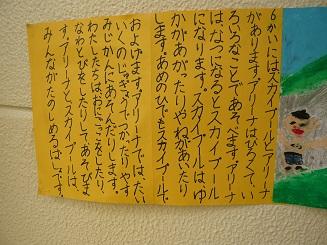 6かいにはスカイプールとアリーナ
があります。アリーナはひろくて、い
ろいろなことであそべます。アリーナ
は、なつになるとスカイプール
になります。スカイプールはゆ
かがあがったりやねがあいたり
します。あめのひでもスカイプールで
およげます。アリーナでは、たい
いくのじゅぎょうでつかったりやす
みじかんにあそんだりします。
わたしたちは、おにごっこをしたり、
なわとびをしたりしてあそびま
す。アリーナとスカイプールは、
みんながたのしめるばしょです。